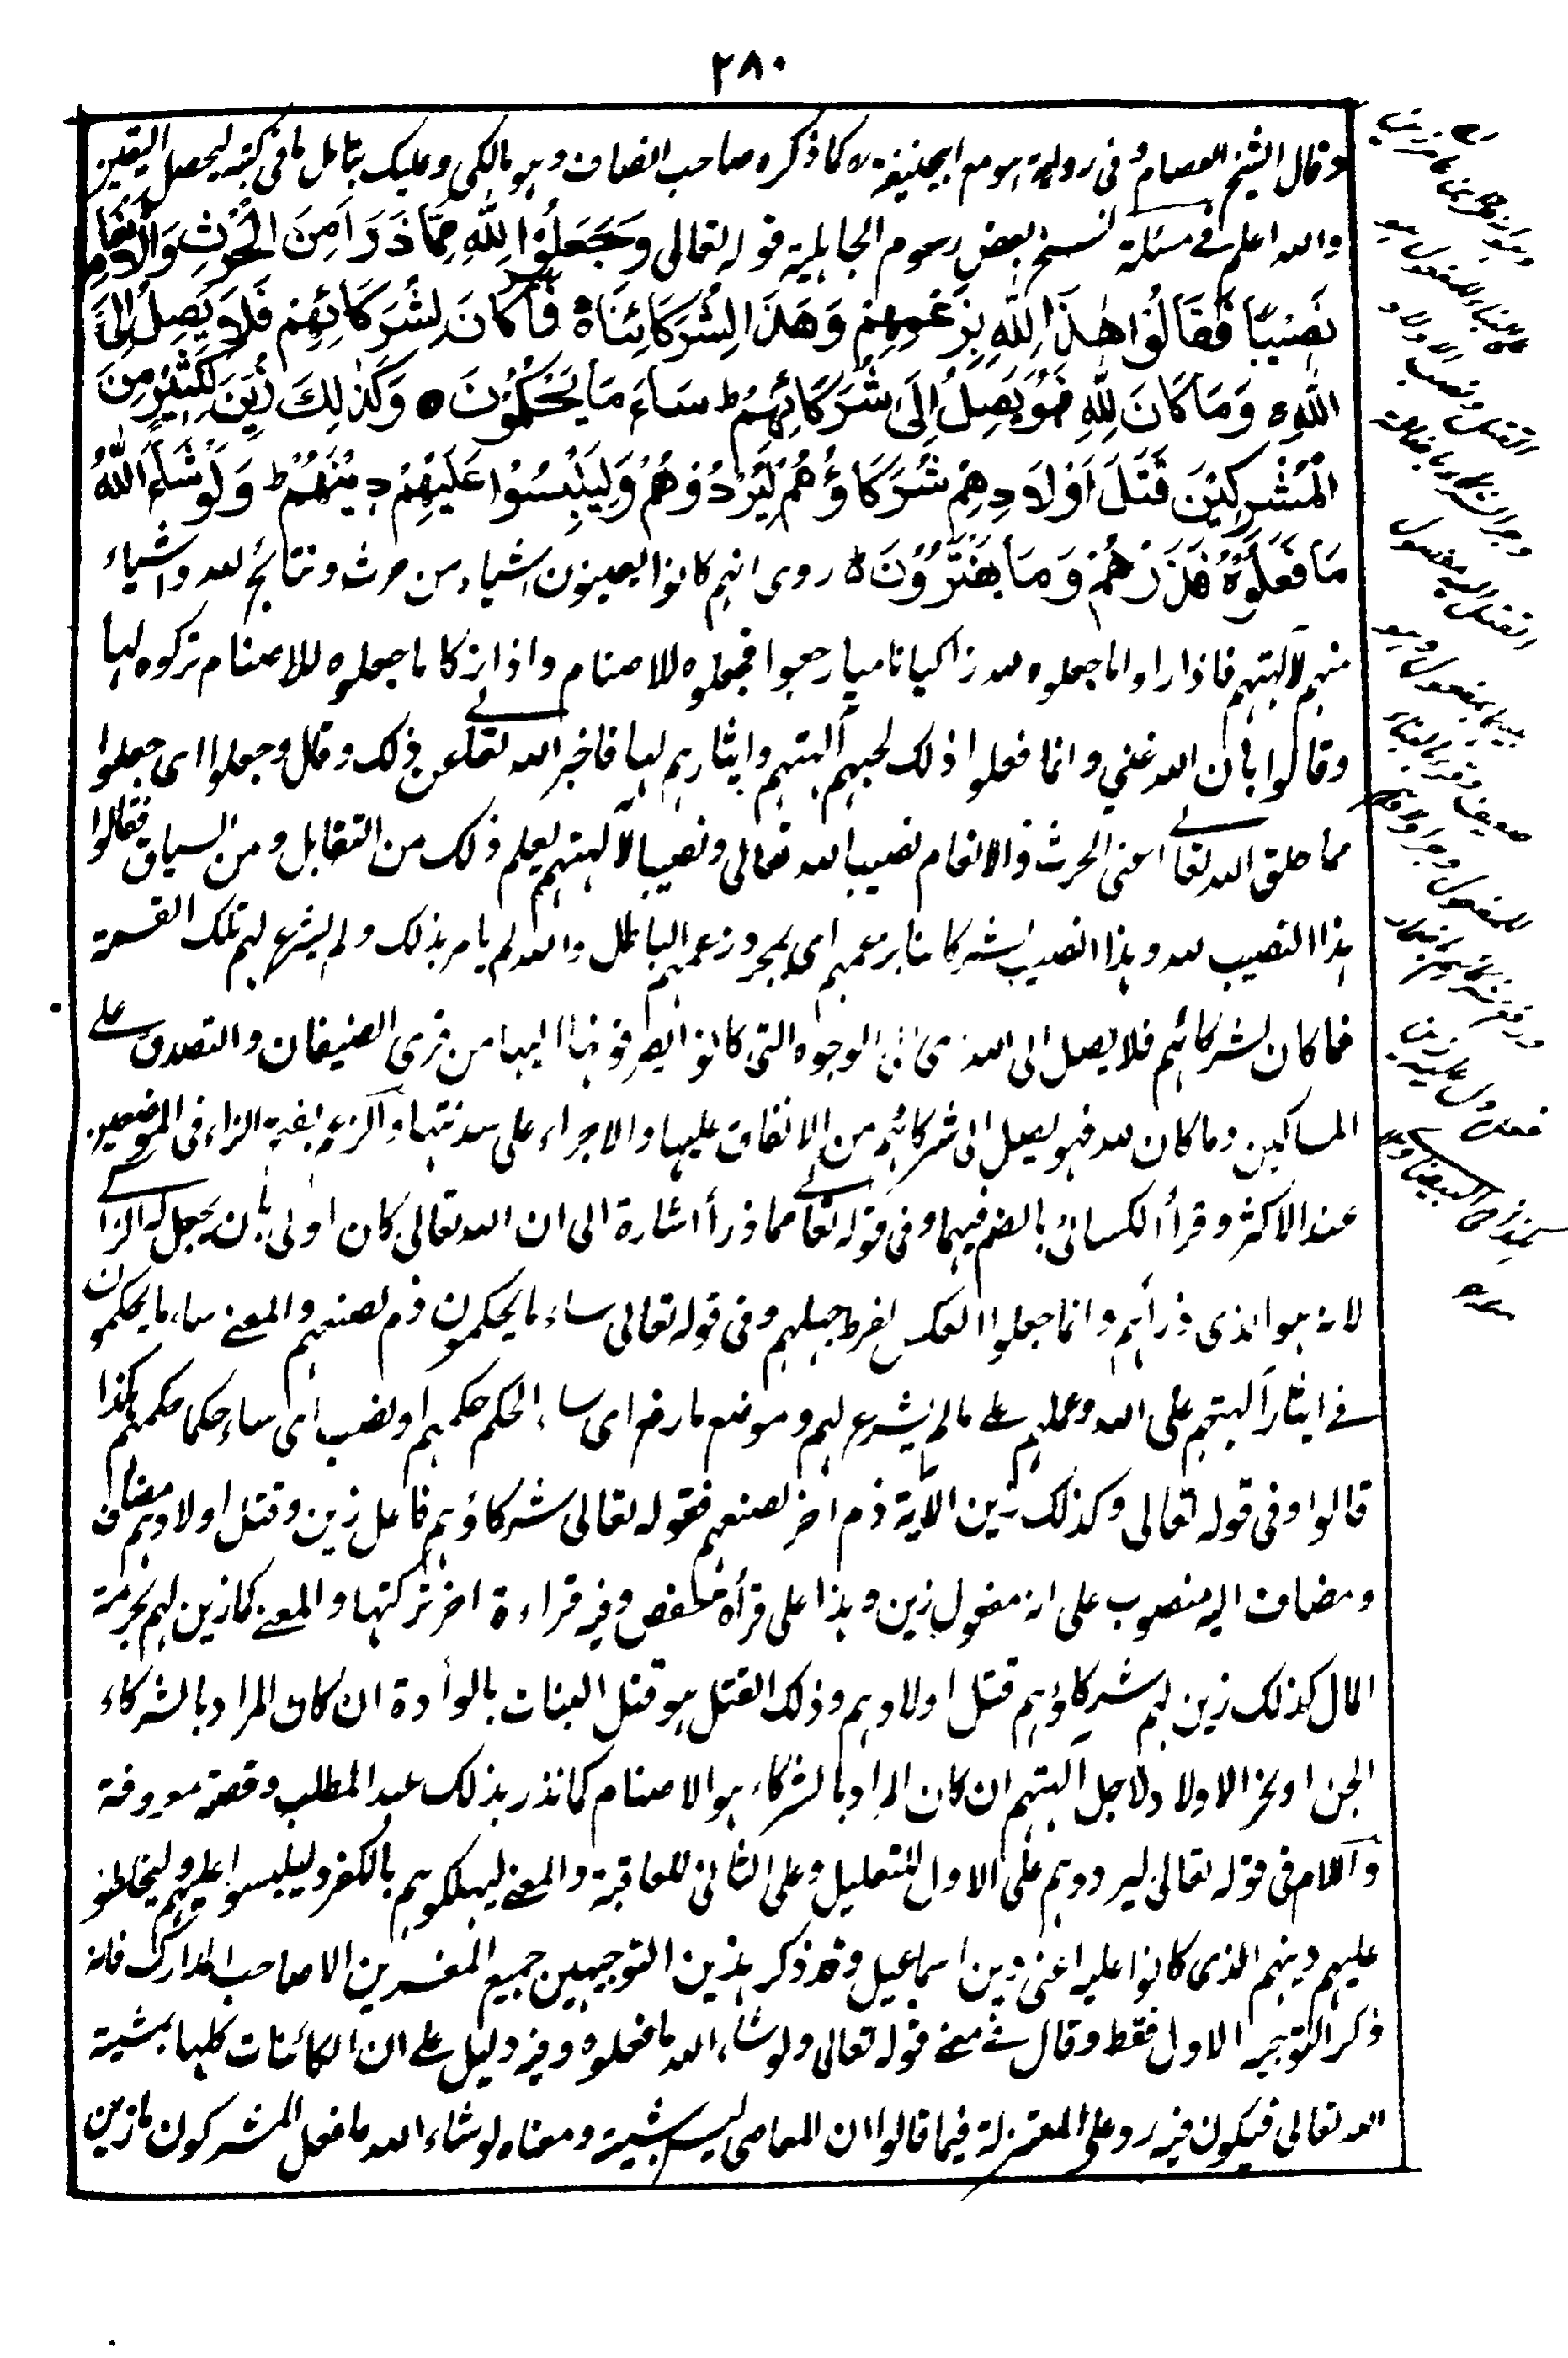 ٢٨٠
وقال الشيخ العصام في رواية هو مع ابيحنيفة ره كما ذكره صاحب انصاف وهو مالكي وعليك بتامل ما في كتبه ليحصل اليقين
والله اعلم في مسئلة نسخ بعض رسوم الجاهلية قوله تعالى وَجَعَلُوْا لِلّٰهِ مِمَّا ذَرَاَ مِنَ الْحَرْثِ وَالْاَنْعَامِ
نَصِيْبًا فَقَالُوْا هٰذَا لِلّٰهِ بِزَعْمِهِمْ وَهٰذَا لِشُرَكَائِنَا ۚ فَمَا كَانَ لِشُرَكَائِهِمْ فَلَا يَصِلُ اِلَى
اللّٰهِ ۚ وَمَا كَانَ لِلّٰهِ فَهُوَ يَصِلُ اِلٰى شُرَكَائِهِمْ ط سَاءَ مَا يَحْكُمُوْنَ ○ وَكَذٰلِكَ زَيَّنَ لِكَثِيْرٍ مِنَ
الْمُشْرِكِيْنَ قَتْلَ اَوْلَادِهِمْ شُرَكَاؤُهُمْ لِيُرْدُوْهُمْ وَلِيَلْبِسُوْا عَلَيْهِمْ دِيْنَهُمْ ط وَلَوْ شَاءَ اللّٰهُ
مَا فَعَلُوْهُ فَذَرْهُمْ وَمَا يَفْتَرُوْنَ ○ روى انهم كانوا يعينون اشياء من حرث ونتائج لله واشياء
منهم لآلهتهم فاذا راوا ما جعلوه لله زاكيا ناميا رجعوا فجعلوه للاصنام واذا زكا ما جعلوه للاصنام تركوه لها
وقالوا بان الله غني وانما فعلوا ذلك لحبهم آلهتهم وايثارهم لها فاخبر الله تعالى عن ذلك وقال وجعلوا اى جعلوا
مما خلق الله تعالى اعني الحرث والانعام نصيبا لله تعالى ونصيبا لآلهتهم يعلم ذلك من التقابل ومن السياق فقالوا
هذا النصيب لله وهذا النصيب لشركائنا بزعمهم اى بمجرد زعمهم الباطل والله لم يامر بذلك ولم يشرع لهم تلك القسمة
فما كان لشركائهم فلا يصل الى الله اى الى الوجوه التى كانوا يصرفونها اليها من قرى الضيفان والتصدق على
المساكين وما كان لله فهو يصل الى شركائهم من الانفاق عليها والاجراء على سدنتها والزعم بفتح الزاء فى الموضعين
عند الاكثر وقرأ الكسائى بالضم فيهما وفى قوله تعالى مما ذرأ اشارة الى ان الله تعالى كان اولى بان يجعل له الزاكى
لانه هو الذى ذرأهم وانما جعلوا العكس لفرط جهلهم وفى قوله تعالى ساء ما يحكمون ذم لصنعهم والمعنى ساء ما يحكمون
فى ايثار آلهتهم على الله وعملهم على ما لم يشرع لهم وموضع ما رفع اى ساء الحكم حكمهم او نصب اى ساء حكما حكمهم هكذا
قالوا وفى قوله تعالى وكذلك زين الآية ذم اخر لصنعهم فقوله تعالى شركاؤهم فاعل زين وقتل اولادهم مضاف
ومضاف اليه منصوب على انه مفعول زين وهذا على قرأة حفص وفيه قراءة اخر تركتها والمعنى كما زين لهم تجزية
المال كذلك زين لهم شركاؤهم قتل اولادهم وذلك القتل هو قتل البنات بالوأدة ان كان المراد بالشركاء
الجن او نحر الاولاد لاجل آلهتهم ان كان المراد بالشركاء هو الاصنام كما نذر بذلك عبد المطلب وقصته معروفة
واللام فى قوله تعالى ليردوهم على الاول للتعليل وعلى الثانى للعاقبة والمعنى ليهلكوهم بالكفر وليلبسوا عليهم وليخلطوا
عليهم دينهم الذى كانوا عليه اعنى دين اسماعيل وقد ذكر هذين التوجيهين جميع المفسرين الا صاحب المدارك فانه
ذكر التوجيه الاول فقط وقال فى معنى قوله تعالى ولو شاء الله ما فعلوه وفيه دليل على ان الكائنات كلها بمشية
الله تعالى فيكون فيه رد على المعتزلة فيما قالوا ان المعاصى ليس بمشية ومعناه لو شاء الله ما فعل المشركون ما زين